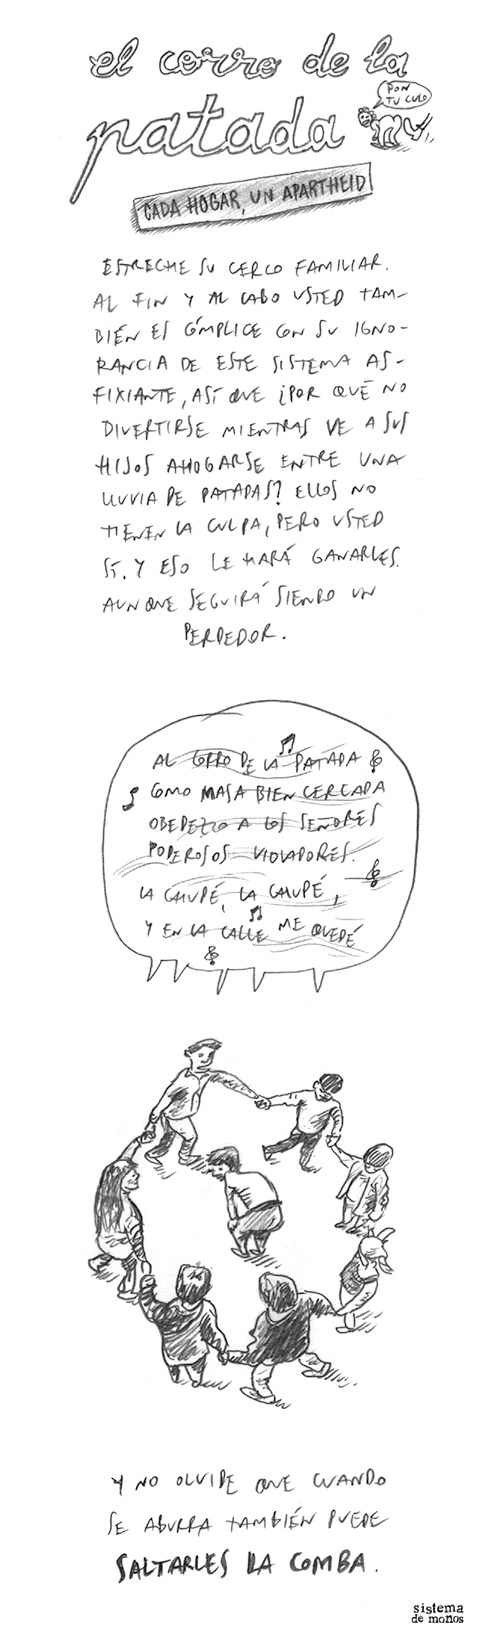 el corro de la
patada
PON
TU CULO
CADA HOGAR, UN APARTHEID
ESTRECHE SU CERCO FAMILIAR.
AL FIN Y AL CABO USTED TAM-
BIÉN ES CÓMPLICE CON SU IGNO-
RANCIA DE ESTE SISTEMA AS-
FIXIANTE, ASÍ QUE ¿POR QUÉ NO
DIVERTIRSE MIENTRAS VE A SUS
HIJOS AHOGARSE ENTRE UNA
LLUVIA DE PATADAS? ELLOS NO
TIENEN LA CULPA, PERO USTED
SÍ. Y ESO LE HARÁ GANARLES.
AUNQUE SEGUIRÁ SIENDO UN
PERDEDOR.
AL CORRO DE LA PATADA
COMO MASA BIEN CERCADA
OBEDEZCO A LOS SEÑORES
PODEROSOS VIOLADORES.
LA CHUPÉ, LA CHUPÉ,
Y EN LA CALLE ME QUEDÉ
Y NO OLVIDE QUE CUANDO
SE ABURRA TAMBIÉN PUEDE
SALTARLES LA COMBA.
sistema
de monos